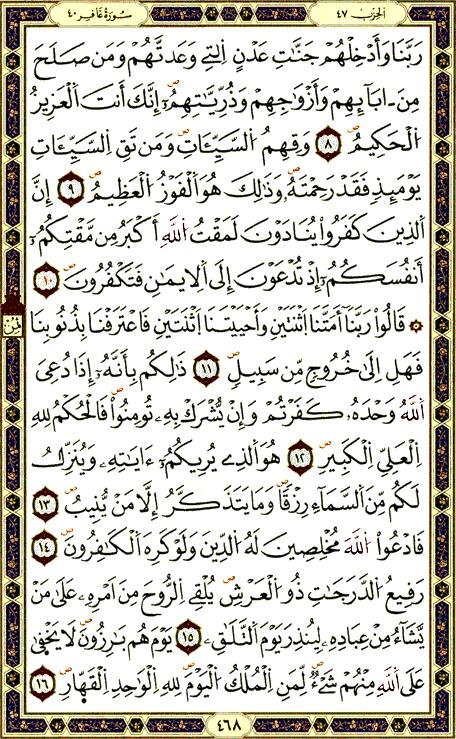 الحزب ٤٧
سورة غافر ٤٠
رَبَّنَا وَأَدْخِلْهُمْ جَنَّٰتِ عَدْنٍ اِلتِے وَعَدتَّهُمْ وَمَن صَلَحَ
مِنَ ـ ابَآئِهِمْ وَأَزْوَٰجِهِمْ وَذُرِّيَّٰتِهِمُۥٓۖ إِنَّكَ أَنتَ اَلْعَزِيزُ
اُلْحَكِيمُۖ ٨ وَقِهِمُ اُلسَّيِّـَٔاتِۖ وَمَن تَقِ اِلسَّيِّـَٔاتِ
يَوْمَئِذٖ فَقَدْ رَحِمْتَهُۥۖ وَذَٰلِكَ هُوَ اَلْفَوْزُ اُلْعَظِيمُۖ ٩ إِنَّ
اَلذِينَ كَفَرُواْ يُنَادَوْنَ لَمَقْتُ اُللَّهِ أَكْبَرُ مِن مَّقْتِكُمُۥٓ
أَنفُسَكُمُۥٓ إِذْ تُدْعَوْنَ إِلَى اَلِايمَٰنِ فَتَكْفُرُونَۖ ١٠
۞ قَالُواْ رَبَّنَآ أَمَتَّنَا اَثْنَتَيْنِ وَأَحْيَيْتَنَا اَثْنَتَيْنِ فَاعْتَرَفْنَا بِذُنُوبِنَا
فَهَلِ اِلَىٰ خُرُوجٖ مِّن سَبِيلٖۖ ١١ ذَٰلِكُم بِأَنَّهُۥٓ إِذَا دُعِيَ
اَللَّهُ وَحْدَهُۥ كَفَرْتُمْ وَإِنْ يُّشْرَكْ بِهِۦ تُومِنُواْۖ فَالْحُكْمُ لِلهِ
اِلْعَلِيِّ اِلْكَبِيرِۖ ١٢ هُوَ اَلذِے يُرِيكُمُۥٓ ءَايَٰتِهِۦ وَيُنَزِّلُ
لَكُم مِّنَ اَلسَّمَآءِ رِزْقاٗۖ وَمَا يَتَذَكَّرُ إِلَّا مَنْ يُّنِيبُۖ ١٣
فَادْعُواْ اُللَّهَ مُخْلِصِينَ لَهُ اُلدِّينَ وَلَوْ كَرِهَ اَلْكَٰفِرُونَۖ ١٤
رَفِيعُ اُلدَّرَجَٰتِ ذُو اُلْعَرْشِۖ يُلْقِے اِلرُّوحَ مِنَ اَمْرِهِۦ عَلَىٰ مَنْ
يَّشَآءُ مِنْ عِبَادِهِۦ لِيُنذِرَ يَوْمَ اَلتَّلَٰقِۦ ١٥ يَوْمَ هُم بَٰرِزُونَۖ لَا يَخْفَىٰ
عَلَى اَللَّهِ مِنْهُمْ شَےْءٞۖ لِّمَنِ اِلْمُلْكُ اُلْيَوْمَۖ لِلهِ اِلْوَٰحِدِ اِلْقَهّ۪ارِۖ ١٦
حزب
٤٦٨